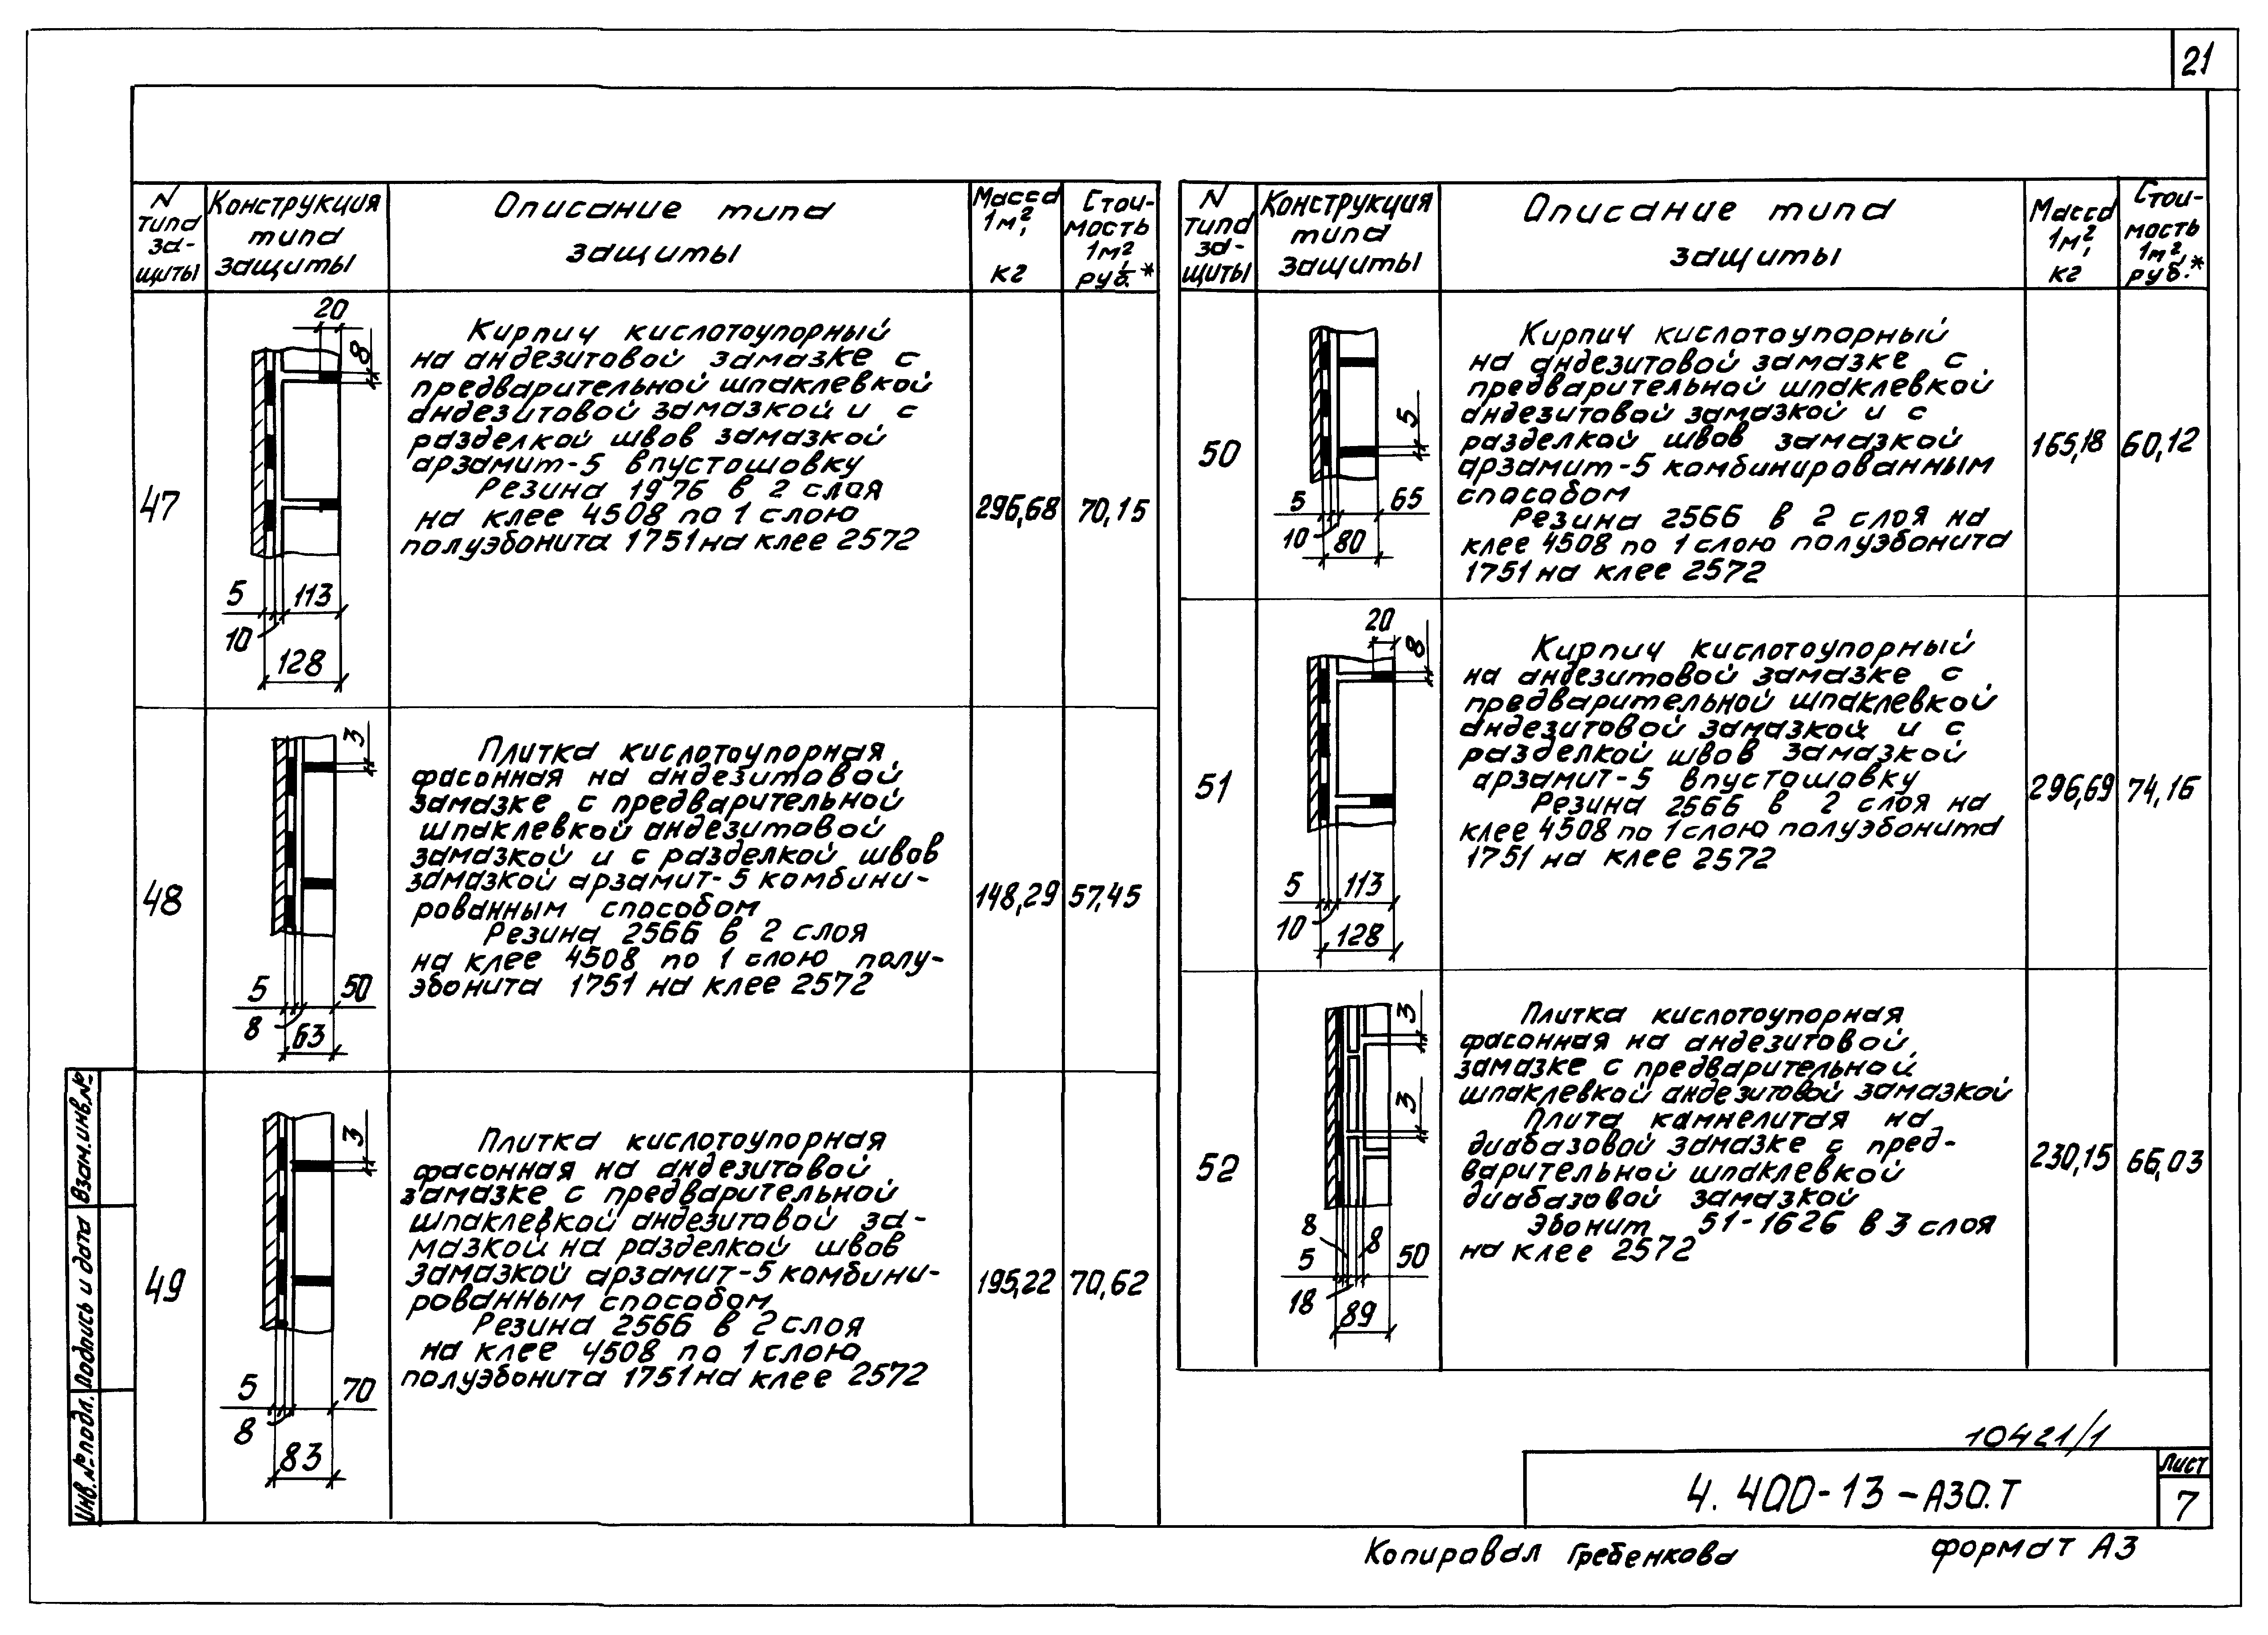 21
N
типа
за-
щиты
Конструкция
типа
защиты
Описание типа
защиты
Масса
1м²,
кг
Стои-
мость
1м²,
руб.*
47
20
8
5
113
10
128
Кирпич кислотоупорный
на андезитовой замазке с
предварительной шпаклевкой
андезитовой замазкой и с
разделкой швов замазкой
арзамит-5 впустошовку
Резина 1976 в 2 слоя
на клее 4508 по 1 слою
полуэбонита 1751 на клее 2572
296,68
70,15
48
3
5
50
8
63
Плитка кислотоупорная
фасонная на андезитовой
замазке с предварительной
шпаклевкой андезитовой
замазкой и с разделкой швов
замазкой арзамит-5 комбини-
рованным способом
Резина 2566 в 2 слоя
на клее 4508 по 1 слою полу-
эбонита 1751 на клее 2572
148,29
57,45
49
3
5
70
8
83
Плитка кислотоупорная
фасонная на андезитовой
замазке с предварительной
шпаклевкой андезитовой за-
мазкой на разделкой швов
замазкой арзамит-5 комбини-
рованным способом
Резина 2566 в 2 слоя
на клее 4508 по 1 слою
полуэбонита 1751 на клее 2572
195,22
70,62
N
типа
за-
щиты
Конструкция
типа
защиты
Описание типа
защиты
Масса
1м²,
кг
Стои-
мость
1м²,
руб.*
50
5
5
65
10
80
Кирпич кислотоупорный
на андезитовой замазке с
предварительной шпаклевкой
андезитовой замазкой и с
разделкой швов замазкой
арзамит-5 комбинированным
способом
Резина 2566 в 2 слоя на
клее 4508 по 1 слою полуэбонита
1751 на клее 2572
165,18
60,12
51
20
8
5
113
10
128
Кирпич кислотоупорный
на андезитовой замазке с
предварительной шпаклевкой
андезитовой замазкой и с
разделкой швов замазкой
арзамит-5 впустошовку
Резина 2566 в 2 слоя на
клее 4508 по 1 слою полуэбонита
1751 на клее 2572
296,69
74,16
52
3
3
8
8
5
50
18
89
Плитка кислотоупорная
фасонная на андезитовой
замазке с предварительной
шпаклевкой андезитовой замазкой
Плита камнелитая на
диабазовой замазке с пред-
варительной шпаклевкой
диабазовой замазкой
Эбонит 51-1626 в 3 слоя
на клее 2572
230,15
66,03
Взам.инв.№
Подпись и дата
Инв.№ подл.
10421/1
4.400-13-АЗО.Т
Лист
7
Копировал Гребенкова
формат А3